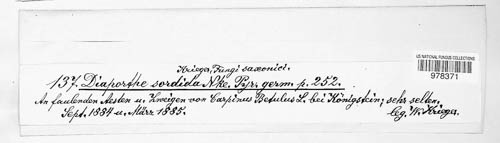 Krieger, Fungi saxonici.
137. Diaporthe sordida Nke. Pyr. germ. p. 252.
An faulenden Aesten u. Zweigen von Carpinus Betulus L. bei Königstein; sehr selten.
Sept. 1884 u. März 1885.
leg. W. Krieger.
US NATIONAL FUNGUS COLLECTIONS
978371